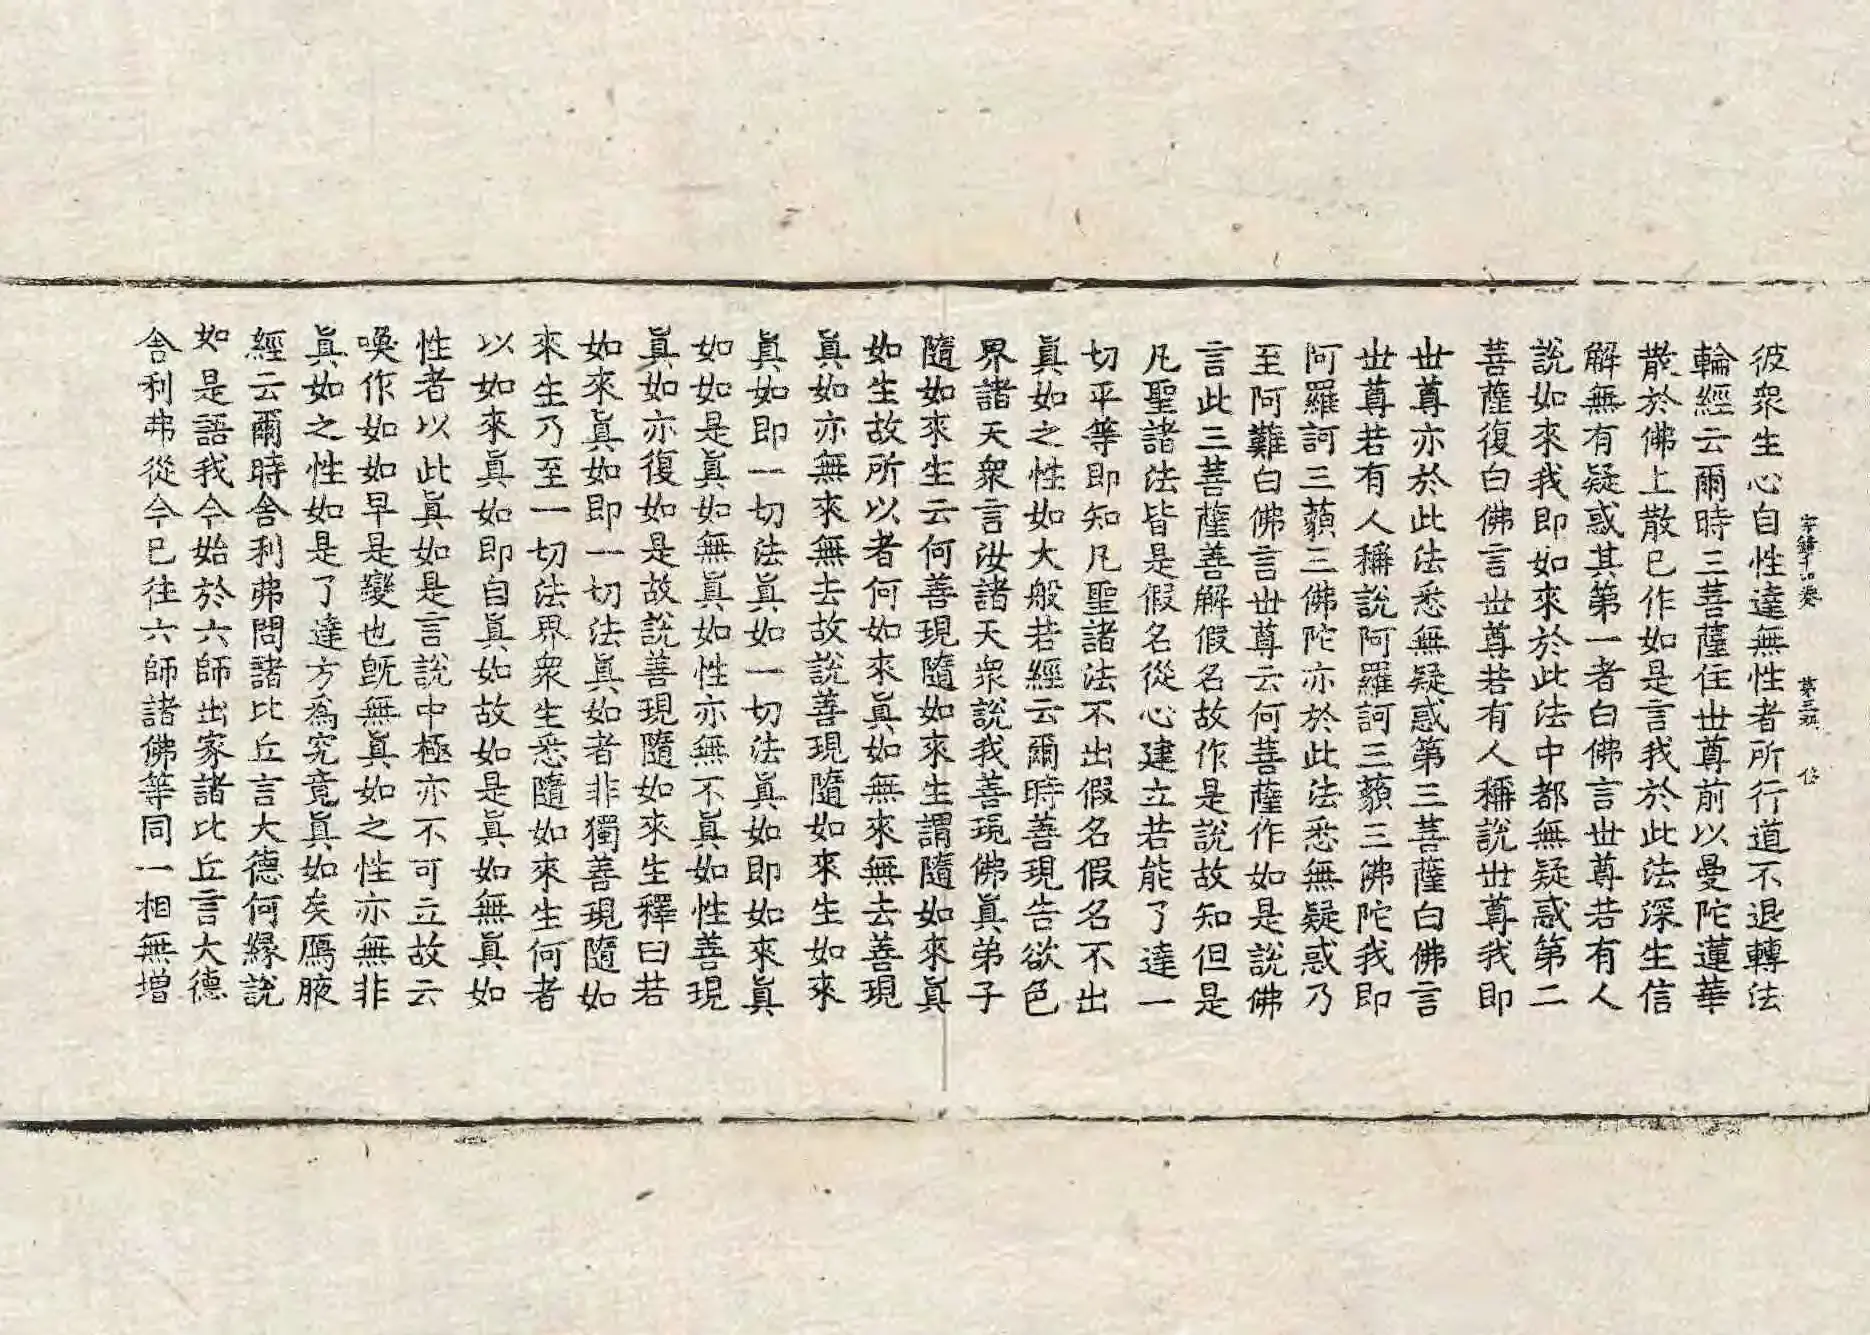 彼衆生心自性達無性者所行道不退轉法
輪經云爾時三菩薩住世尊前以曼陀蓮華
散於佛上散已作如是言我於此法深生信
解無有疑惑其第一者白佛言世尊若有人
說如來我即如來於此法中都無疑惑第二
菩薩復白佛言世尊若有人稱說世尊我即
世尊亦於此法悉無疑惑第三菩薩白佛言
世尊若有人稱說阿羅訶三藐三佛陀我即
阿羅訶三藐三佛陀亦於此法悉無疑惑乃
至阿難白佛言世尊云何菩薩作如是說佛
言此三菩薩善解假名故作是說故知但是
凡聖諸法皆是假名從心建立若能了達一
切平等即知凡聖諸法不出假名假名不出
眞如之性如大般若經云爾時善現告欲色
界諸天衆言汝諸天衆說我善現佛眞弟子
隨如來生云何善現隨如來生謂隨如來眞
如生故所以者何如來眞如無來無去善現
眞如亦無來無去故說善現隨如來生如來
眞如即一切法眞如一切法眞如即如來眞
如如是眞如無眞如性亦無不眞如性善現
眞如亦復如是故說善現隨如來生釋曰若
如來眞如即一切法眞如者非獨善現隨如
來生乃至一切法界衆生悉隨如來生何者
以如來眞如即自眞如故如是眞如無眞如
性者以此眞如是言說中極亦不可立故云
喚作如如早是變也旣無眞如之性亦無非
眞如之性如是了達方爲究竟眞如矣鴈腋
經云爾時舍利弗問諸比丘言大德何縁說
如是語我今始於六師出家諸比丘言大德
舍利弗從今已往六師諸佛等同一相無增